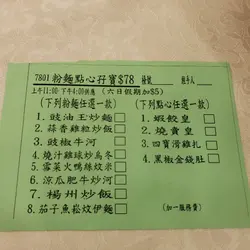 7801 粉麵點心孖寶$78 檯號 經手人
上午11:00-下午4:00供應 (六日假期加$5)
(下列粉麵任選一款) (下列點心任選一款)
1. 豉油王炒麵 1. 蝦餃皇
2. 蒜香雞粒炒飯 2. 燒賣皇
3. 豉椒牛河 3. 四寶滑雞扎
4. 燒汁雞球炒烏冬 4. 黑椒金錢肚
5. 雪菜火鴨絲炆米
6. 涼瓜肥牛炒河
7. 楊州炒飯
8. 茄子魚崧炆伊麵 (加一服務費)